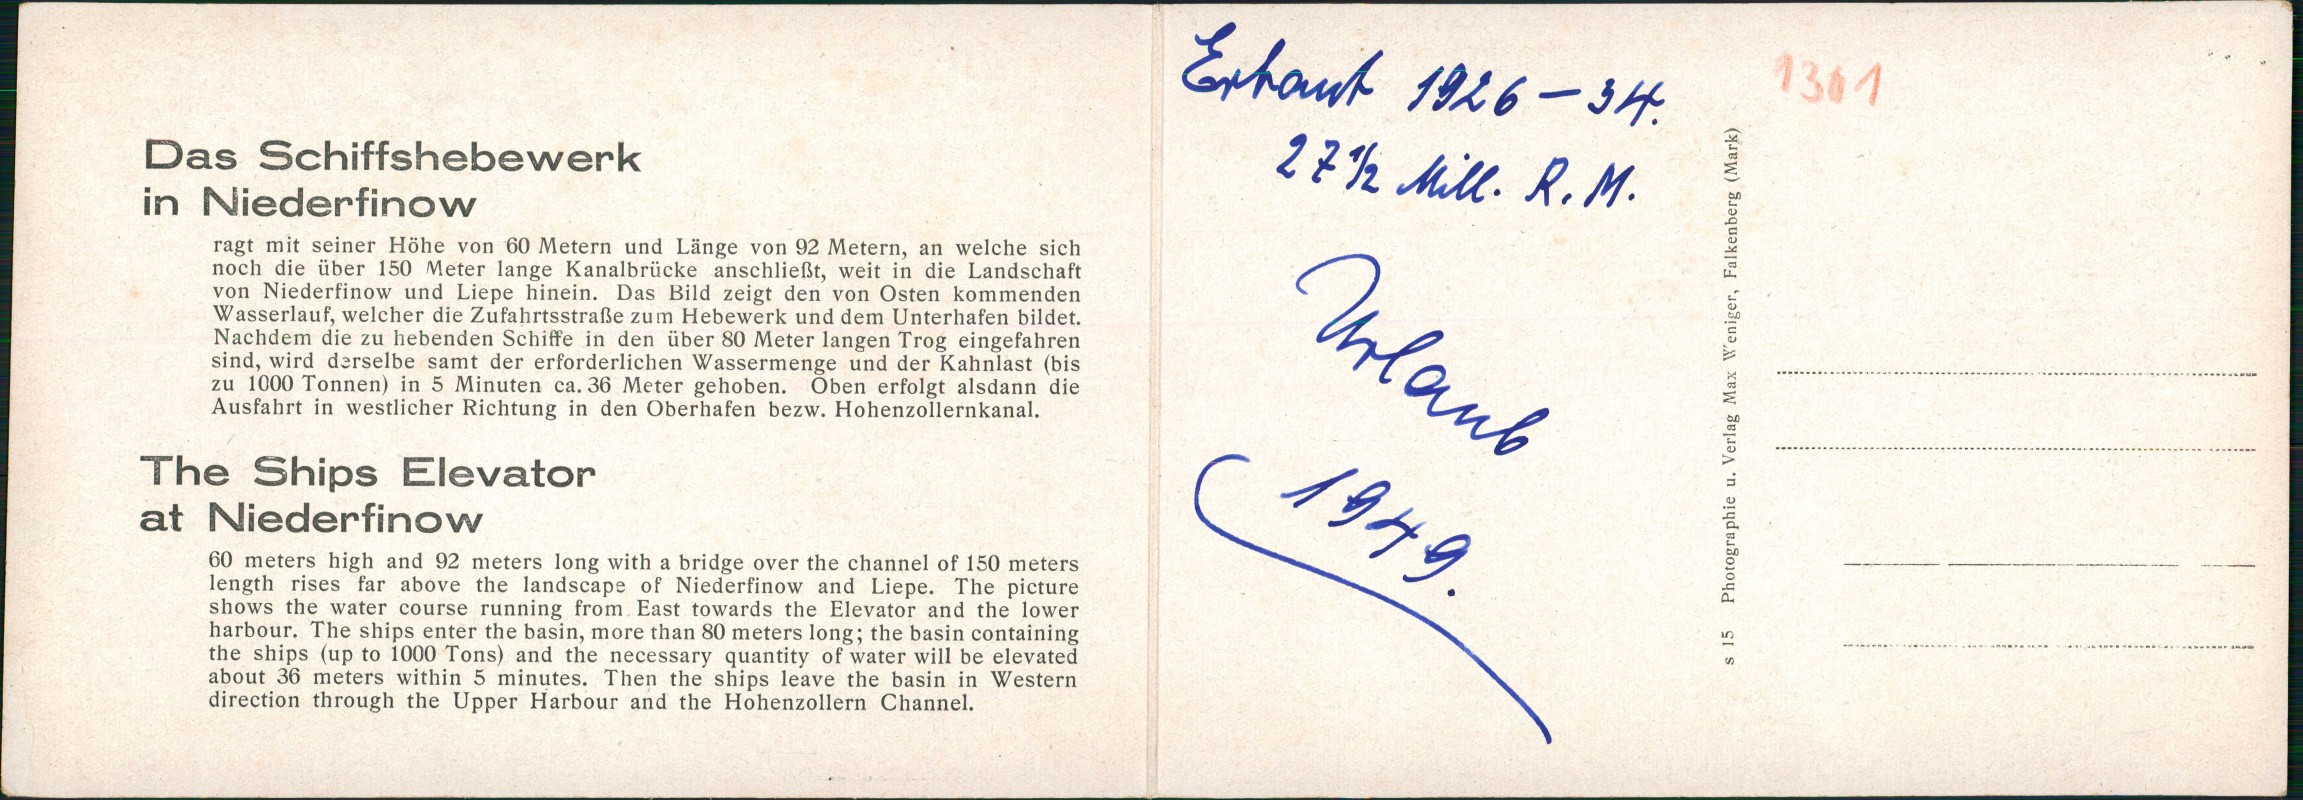 Das Schiffshebewerk
in Niederfinow
ragt mit seiner Höhe von 60 Metern und Länge von 92 Metern, an welche sich
noch die über 150 Meter lange Kanalbrücke anschließt, weit in die Landschaft
von Niederfinow und Liepe hinein. Das Bild zeigt den von Osten kommenden
Wasserlauf, welcher die Zufahrtsstraße zum Hebewerk und dem Unterhafen bildet.
Nachdem die zu hebenden Schiffe in den über 80 Meter langen Trog eingefahren
sind, wird derselbe samt der erforderlichen Wassermenge und der Kahnlast (bis
zu 1000 Tonnen) in 5 Minuten ca. 36 Meter gehoben. Oben erfolgt alsdann die
Ausfahrt in westlicher Richtung in den Oberhafen bezw. Hohenzollernkanal.
The Ships Elevator
at Niederfinow
60 meters high and 92 meters long with a bridge over the channel of 150 meters
length rises far above the landscape of Niederfinow and Liepe. The picture
shows the water course running from East towards the Elevator and the lower
harbour. The ships enter the basin, more than 80 meters long; the basin containing
the ships (up to 1000 Tons) and the necessary quantity of water will be elevated
about 36 meters within 5 minutes. Then the ships leave the basin in Western
direction through the Upper Harbour and the Hohenzollern Channel.
Erbaut 1926 – 34.
27 1/2 Mill. R. M.
Urlaub
1949.
s 15 Photographie u. Verlag Max Weniger, Falkenberg (Mark)
1301